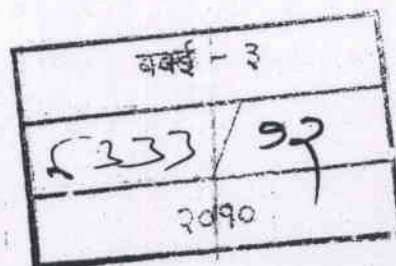 बबई - ३
८३३३ / १२
२०१०